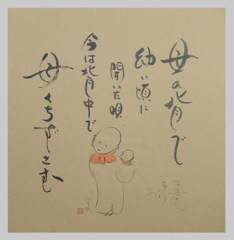 母の背で
幼い頃に
聞いた唄
今は背中で
母くちずさむ